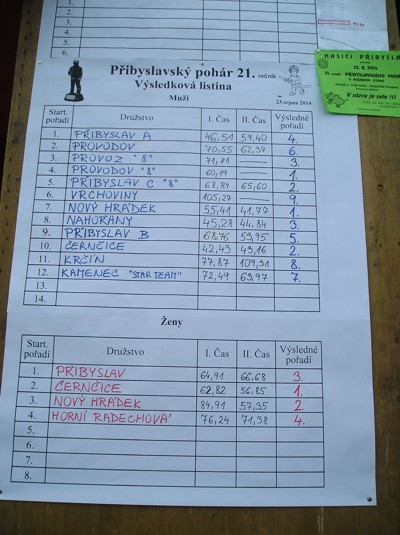 5.
6.
HASIČI PŘIBYSLAV
23. 8. 2014
PŘIBYSLAVSKÉHO POHÁRU
V sázce je sele !!!
Přibyslavský pohár 21. ročník
Výsledková listina
Muži
23.srpna 2014
Start. pořadí Družstvo I. Čas II. Čas Výsledné pořadí
1. PŘIBYSLAV A 46,51 59,40 4.
2. PROVODOV 70,55 62,37 6.
3. PROVOZ "8" 71,81 —— 3.
4. PROVODOV "8" 60,19 —— 1.
5. PŘIBYSLAV C "8" 68,89 65,60 2.
6. VRCHOVINY 105,27 —— 9.
7. NOVÝ HRÁDEK 55,41 41,77 1.
8. NAHOŘANY 45,28 44,84 3.
9. PŘIBYSLAV B 68,76 53,95 5.
10. ČERNČICE 42,43 43,16 2.
11. KRČÍN 77,87 109,31 8.
12. KAMENEC "STAR TEAM" 72,49 63,97 7.
13.
14.
Ženy
Start. pořadí Družstvo I. Čas II. Čas Výsledné pořadí
1. PŘIBYSLAV 64,91 66,68 3.
2. ČERNČICE 62,82 56,85 1.
3. NOVÝ HRÁDEK 84,91 57,35 2.
4. HORNÍ RADECHOVÁ 76,24 71,38 4.
5.
6.
7.
8.